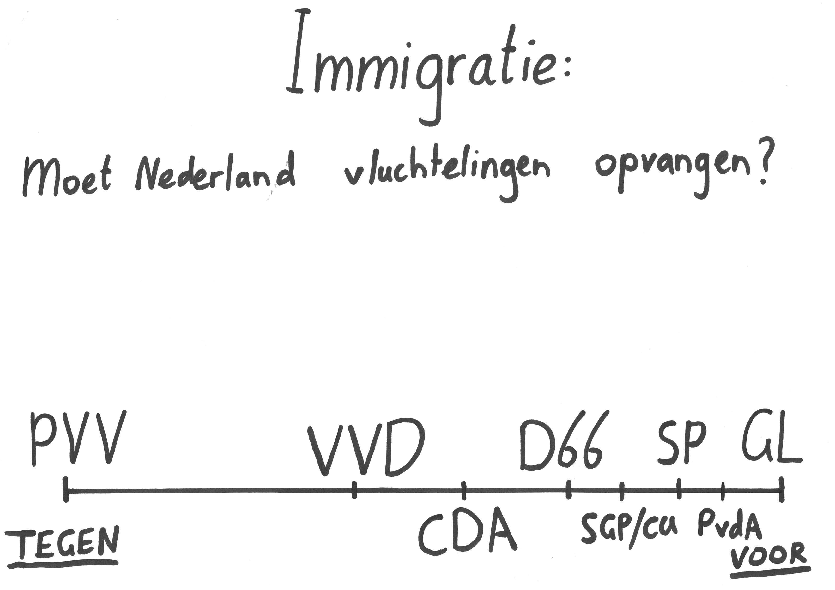 Immigratie:
Moet Nederland vluchtelingen opvangen?
PVV VVD D66 SP GL
CDA SGP/CU PvdA
TEGEN VOOR